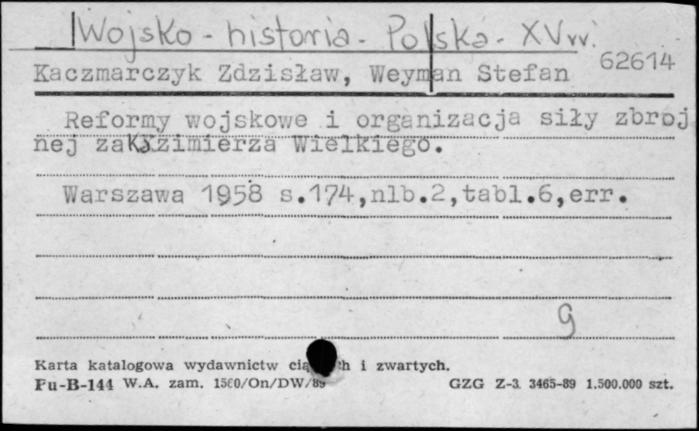 Wojsko - historia - Polska - XV w.
62614
Kaczmarczyk Zdzisław, Weyman Stefan
Reformy wojskowe i organizacja siły zbroj
nej za Kazimierza Wielkiego.
Warszawa 1958 s.174,nlb.2,tabl.6,err.
g
Karta katalogowa wydawnictw i zwartych.
Pu-B-144 W.A. zam. 1560/On/DW/89 GZG Z-3. 3465-89 1.500.000 szt.